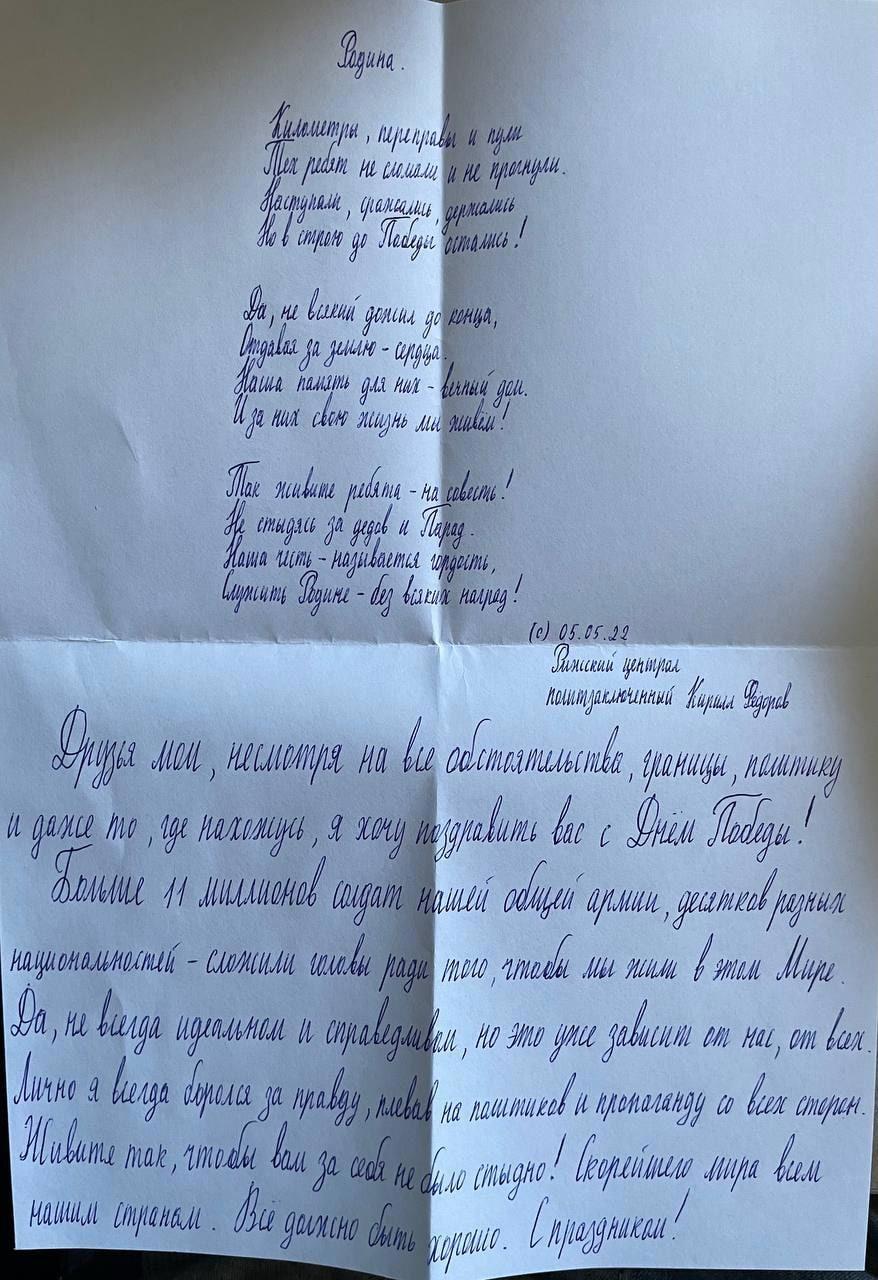 Родина.
Километры, переправы и пули
Тех ребят не сломали и не прогнули.
Наступали, сражались, держались
Но в строю до Победы остались!
Да, не всякий дожил до конца,
Отдавая за землю - сердца.
Наша память для них - вечный дом.
И за них свою жизнь мы живём!
Так живите ребята - на совесть!
Не стыдясь за дедов и Парад.
Наша честь - называется гордость,
Служить Родине - без всяких наград!
(с) 05.05.22
Рижский централ
политзаключенный Кирилл Фёдоров
Друзья мои, несмотря на все обстоятельства, границы, политику
и даже то, где нахожусь, я хочу поздравить вас с Днём Победы!
Больше 11 миллионов солдат нашей общей армии, десятков разных
национальностей - сложили головы ради того, чтобы мы жили в этом Мире.
Да, не всегда идеальном и справедливом, но это уже зависит от нас, от всех.
Лично я всегда боролся за правду, плевав на политиков и пропаганду со всех сторон.
Живите так, чтобы вам за себя не было стыдно! Скорейшего мира всем
нашим странам. Всё должно быть хорошо. С праздником!